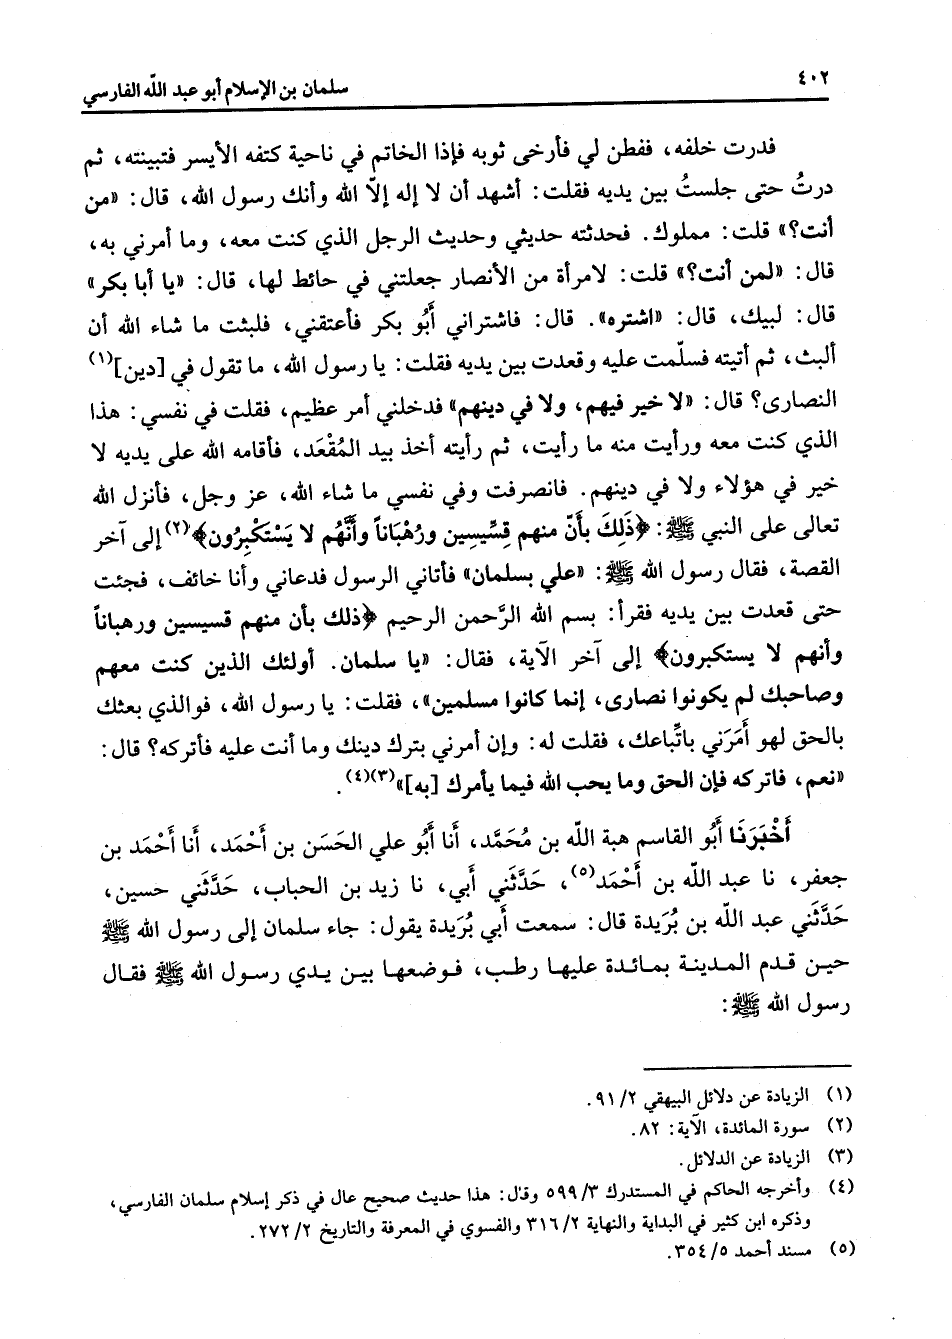 ٤٠٢
سلمان بن الإسلام أبو عبد اللّه الفارسي
فدرت خلفه، ففطن لي فأرخى ثوبه فإذا الخاتم في ناحية كتفه الأيسر فتبينته، ثم
درتُ حتى جلستُ بين يديه فقلت: أشهد أن لا إله إلّا الله وأنك رسول الله، قال: «من
أنت؟» قلت: مملوك. فحدثته حديثي وحديث الرجل الذي كنت معه، وما أمرني به،
قال: «لمن أنت؟» قلت: لامرأة من الأنصار جعلتني في حائط لها، قال: «يا أبا بكر»
قال: لبيك، قال: «اشتره». قال: فاشتراني أَبُو بكر فأعتقني، فلبثت ما شاء الله أن
ألبث، ثم أتيته فسلّمت عليه وقعدت بين يديه فقلت: يا رسول الله، ما تقول في [دين](١)
النصارى؟ قال: «لا خير فيهم، ولا في دينهم» فدخلني أمر عظيم، فقلت في نفسي: هذا
الذي كنت معه ورأيت منه ما رأيت، ثم رأيته أخذ بيد المُقْعَد، فأقامه الله على يديه لا
خير في هؤلاء ولا في دينهم. فانصرفت وفي نفسي ما شاء الله، عز وجل، فأنزل الله
تعالى على النبي ﷺ: ﴿ذَلِكَ بأَنّ منهم قِسِّيسِين ورُهْبَاناً وأَنَّهُم لا يَسْتَكْبِرُون﴾(٢) إلى آخر
القصة، فقال رسول الله ﷺ: «علي بسلمان» فأتاني الرسول فدعاني وأنا خائف، فجئت
حتى قعدت بين يديه فقرأ: بسم الله الرَّحمن الرحيم ﴿ذلك بأن منهم قسيسين ورهباناً
وأنهم لا يستكبرون﴾ إلى آخر الآية، فقال: «يا سلمان. أولئك الذين كنت معهم
وصاحبك لم يكونوا نصارى، إنما كانوا مسلمين»، فقلت: يا رسول الله، فوالذي بعثك
بالحق لهو أَمَرَني باتِّباعك، فقلت له: وإن أمرني بترك دينك وما أنت عليه فأتركه؟ قال:
«نعم، فاتركه فإن الحق وما يحب الله فيما يأمرك [به]»(٣)(٤).
أَخْبَرَنَا أَبُو القاسم هبة اللّه بن مُحَمَّد، أَنا أَبُو علي الحَسَن بن أَحْمَد، أَنا أَحْمَد بن
جعفر، نا عبد اللّه بن أَحْمَد(٥)، حَدَّثَني أَبي، نا زيد بن الحباب، حَدَّثَني حسين،
حَدَّثَني عبد اللّه بن بُرَيدة قال: سمعت أَبي بُرَيدة يقول: جاء سلمان إلى رسول الله ﷺ
حين قدم المدينة بمائدة عليها رطب، فوضعها بين يدي رسول الله ﷺ فقال
رسول الله ﷺ:
(١) الزيادة عن دلائل البيهقي ٩١/٢.
(٢) سورة المائدة، الآية: ٨٢.
(٣) الزيادة عن الدلائل.
(٤) وأخرجه الحاكم في المستدرك ٥٩٩/٣ وقال: هذا حديث صحيح عال في ذكر إسلام سلمان الفارسي،
وذكره ابن كثير في البداية والنهاية ٣١٦/٢ والفسوي في المعرفة والتاريخ ٢٧٢/٢.
(٥) مسند أحمد ٣٥٤/٥.